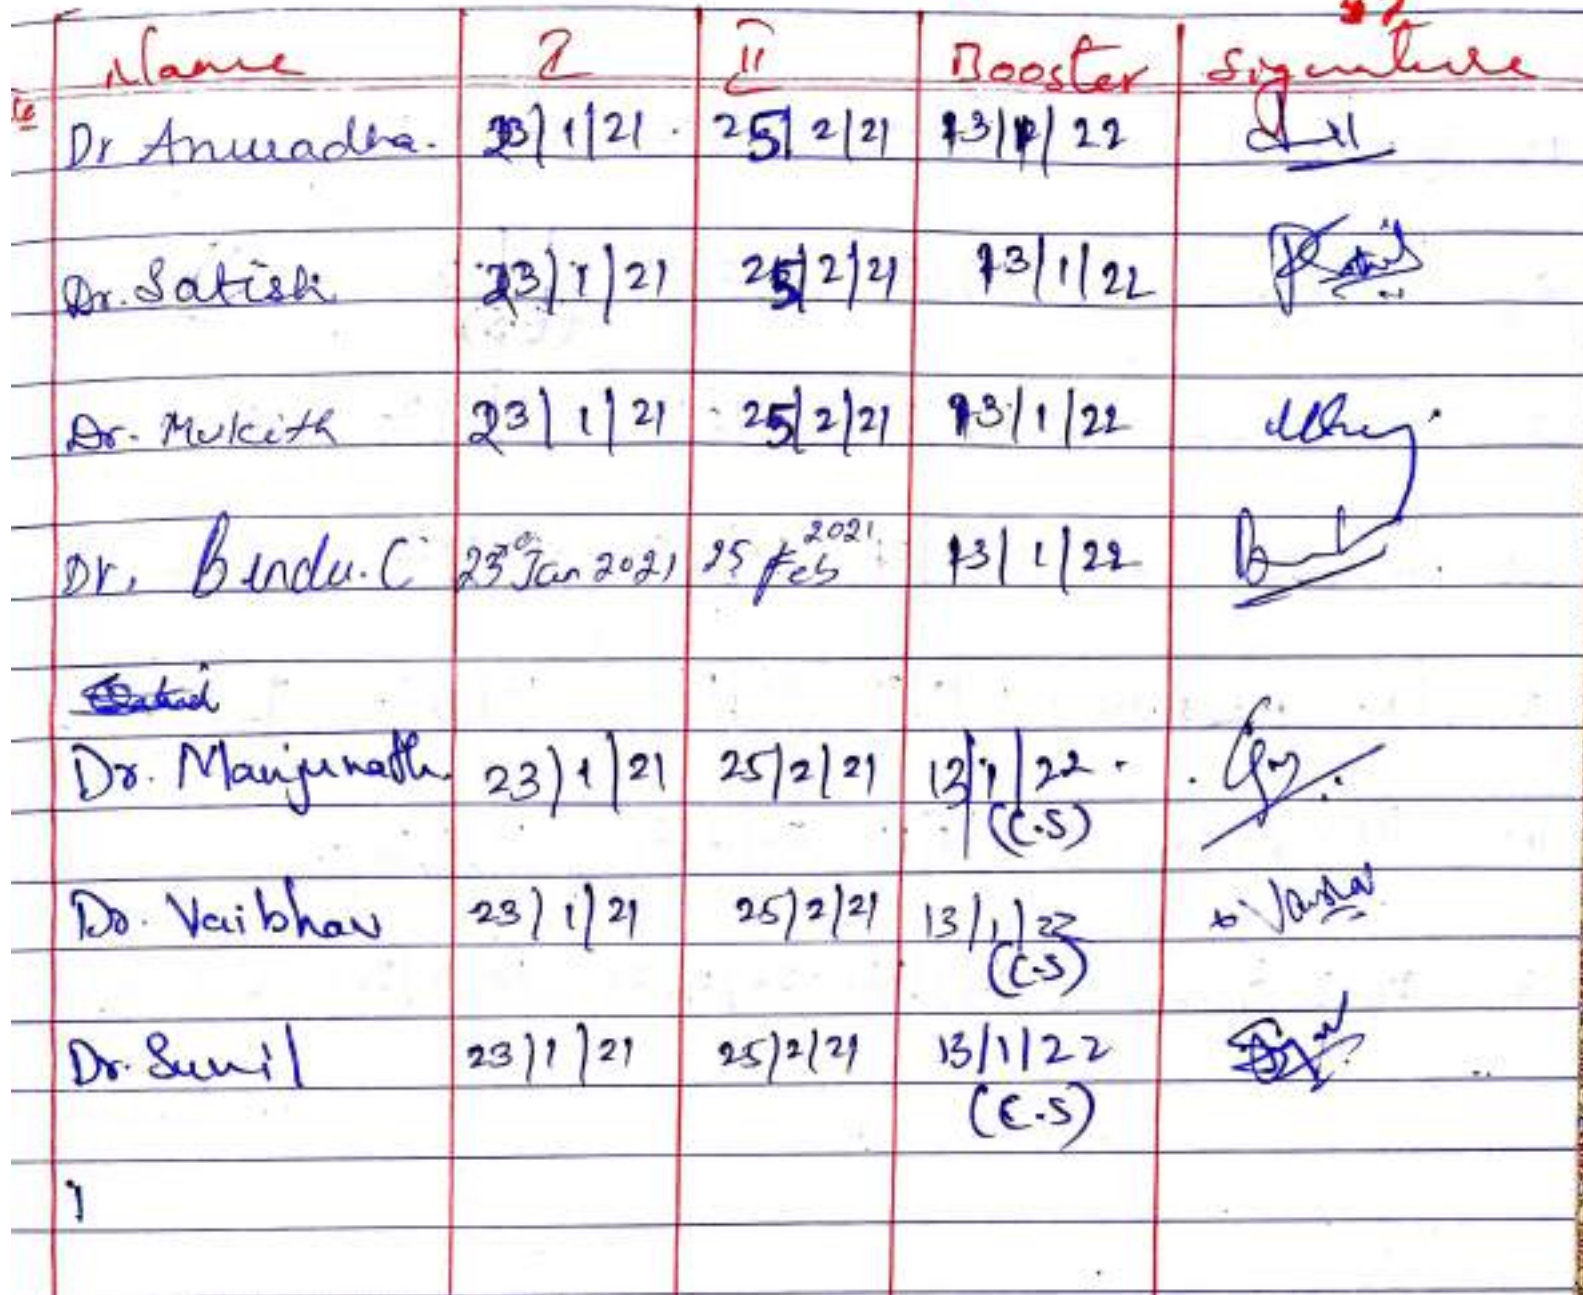 Name I II Booster Signature
te
Dr Anuradha. 23/1/21. 25/2/21 13/1/22
Dr. Satish 23/1/21 25/2/21 13/1/22
Dr. Mukith 23/1/21 25/2/21 13/1/22
2021
Dr. Bindu. C 23 Jan 2021 25 Feb 13/1/22
Dr. Manjunath 23/1/21 25/2/21 12/1/22.
(C.S)
Dr. Vaibhav 23/1/21 25/2/21 13/1/22
(C.S)
Dr. Sunil 23/1/21 25/2/21 13/1/22
(C.S)